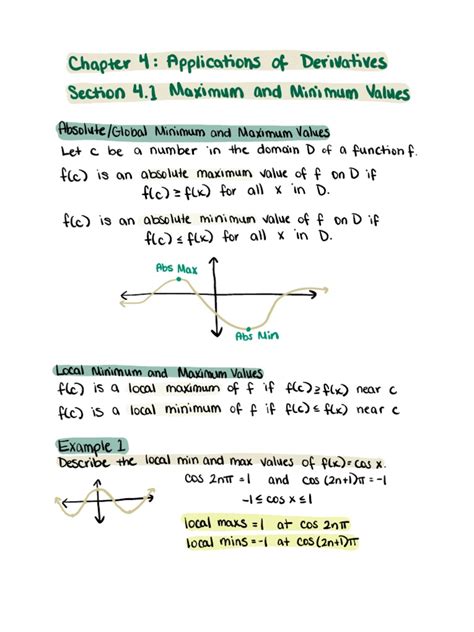 Chapter 4: Applications of Derivatives
Section 4.1 Maximum and Minimum Values
Absolute/Global Minimum and Maximum Values
Let c be a number in the domain D of a function f.
f(c) is an absolute maximum value of f on D if
f(c) ≥ f(x) for all x in D.
f(c) is an absolute minimum value of f on D if
f(c) ≤ f(x) for all x in D.
Abs Max
Abs Min
Local Minimum and Maximum Values
f(c) is a local maximum of f if f(c) ≥ f(x) near c
f(c) is a local minimum of f if f(c) ≤ f(x) near c
Example 1
Describe the local min and max values of f(x)=cos x.
cos 2nπ = 1 and cos (2n+1)π = -1
-1 ≤ cos x ≤ 1
local maxs = 1 at cos 2nπ
local mins = -1 at cos (2n+1)π